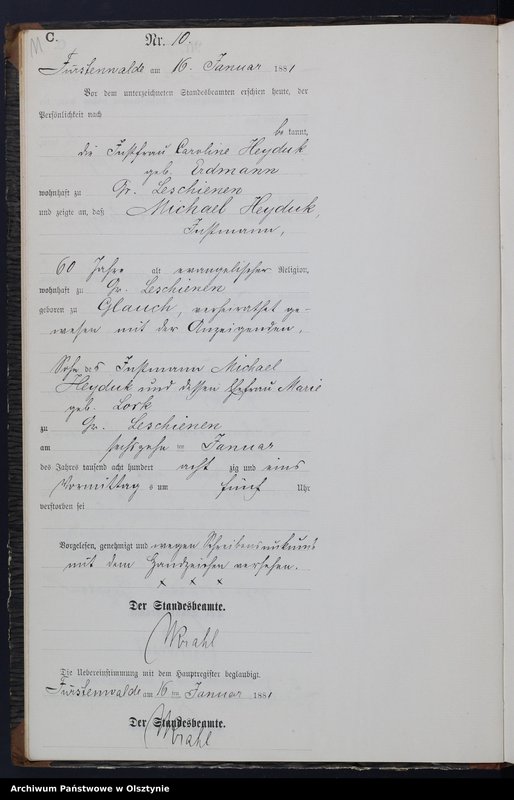 M C.
Nr. 10.
Fürstenwalde am 16. Januar 1881
Vor dem unterzeichneten Standesbeamten erschien heute, der
Persönlichkeit nach
be kannt,
die Instfrau Caroline Heyduk
geb. Erdmann
wohnhaft zu Gr. Leschienen
und zeigte an, daß Michael Heyduk,
Instmann,
60 Jahre alt evangelischer Religion,
wohnhaft zu Gr. Leschienen
geboren zu Glauch, verheirathet ge-
wesen mit der Anzeigenden,
Sohn des Instmann Michael
Heyduk und dessen Ehefrau Marie
geb. Lork
zu Gr. Leschienen
am sechszehn ten Januar
des Jahres tausend acht hundert acht zig und eins
Vormittag s um fünf Uhr
verstorben sei
Vorgelesen, genehmigt und wegen Schreibensunkunde
mit dem Handzeichen versehen.
x x x
Der Standesbeamte.
Wrahl
Die Uebereinstimmung mit dem Hauptregister beglaubigt.
Fürstenwalde am 16 ten Januar 1881
Der Standesbeamte.
Wrahl
Archiwum Państwowe w Olsztynie